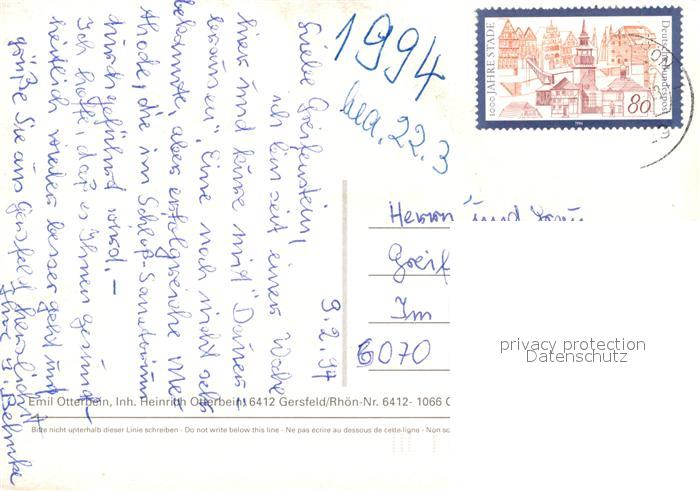 1994
bea. 22.3
1000 JAHRE STADE
Deutsche Bundespost
80
1994
9.2.94
Liebe Greifenstein,
ich bin seit einer Woche
hier und kure mit "Dauner-
brausen". Eine noch nicht sehr
bekannte, aber erfolgreiche Met-
thode, die im Schloß-Sanatorium
durchgeführt wird. -
Ich hoffe, daß es Ihnen gesund-
heitlich wieder besser geht und
grüße Sie aus Gersfeld herzlichst
Ihre
Herrn und Frau
Greif
Im
6070
privacy protection
Datenschutz
Emil Otterbein, Inh. Heinrich Otterbein, 6412 Gersfeld/Rhön-Nr. 6412- 1066
Bitte nicht unterhalb dieser Linie schreiben - Do not write below this line - Ne pas écrire au dessous de cette ligne - Non sc